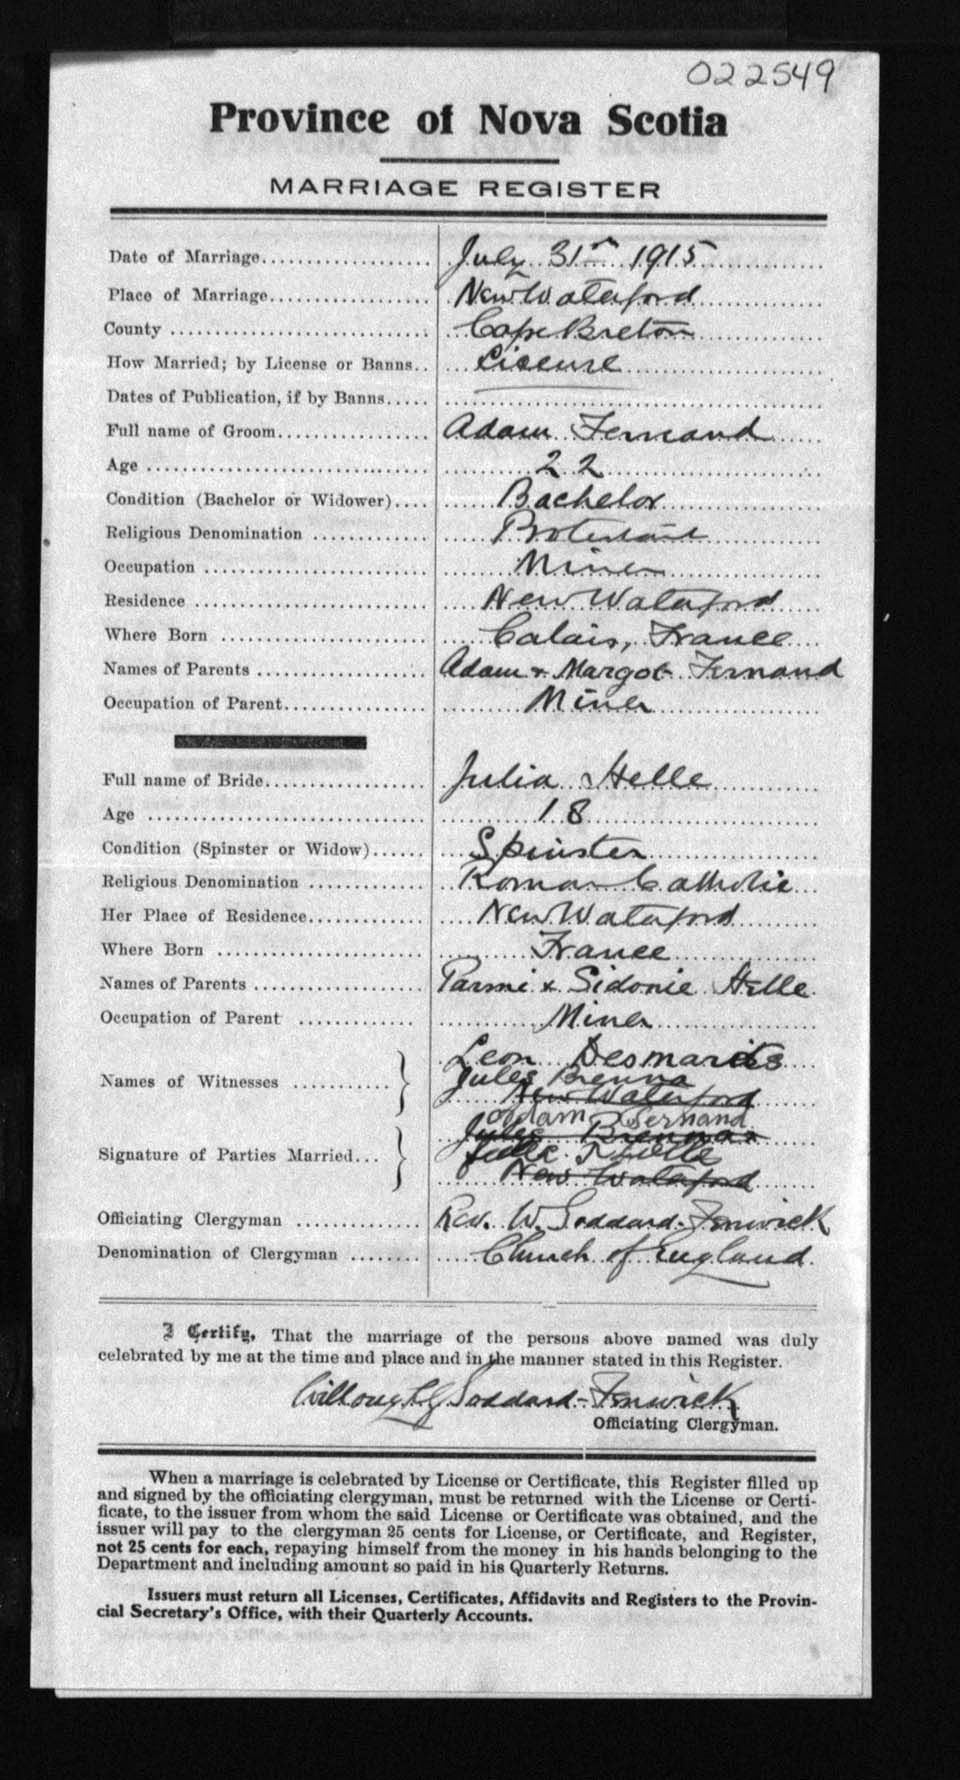 022549
Province of Nova Scotia
MARRIAGE REGISTER
Date of Marriage................... July 31st 1915
Place of Marriage.................. New Waterford
County .............................. Cape Breton
How Married; by License or Banns.. License
Dates of Publication, if by Banns.....
Full name of Groom................. Adam Fernand
Age ................................ 22
Condition (Bachelor or Widower).... Bachelor
Religious Denomination ............. Protestant
Occupation .......................... Miner
Residence ........................... New Waterford
Where Born ......................... Calais, France
Names of Parents .................. Adam & Margot Fernand
Occupation of Parent............... Miner
Full name of Bride.................. Julia Helle
Age ................................ 18
Condition (Spinster or Widow)...... Spinster
Religious Denomination ............. Roman Catholic
Her Place of Residence............. New Waterford
Where Born ......................... France
Names of Parents ................... Parmi & Sidonie Helle
Occupation of Parent ............. Miner
Leon Desmarets
Names of Witnesses ........... } Jules Brenna
New Waterford
adam Fernand
Jules Brenna
Signature of Parties Married... } Helle
New Waterford
Officiating Clergyman .............. Rev. W. Goddard-Fenwick
Denomination of Clergyman ........ Church of England
I Certify, That the marriage of the persons above named was duly
celebrated by me at the time and place and in the manner stated in this Register.
Willoughby Goddard-Fenwick
Officiating Clergyman.
When a marriage is celebrated by License or Certificate, this Register filled up
and signed by the officiating clergyman, must be returned with the License or Certi-
ficate, to the issuer from whom the said License or Certificate was obtained, and the
issuer will pay to the clergyman 25 cents for License, or Certificate, and Register,
not 25 cents for each, repaying himself from the money in his hands belonging to the
Department and including amount so paid in his Quarterly Returns.
Issuers must return all Licenses, Certificates, Affidavits and Registers to the Provin-
cial Secretary's Office, with their Quarterly Accounts.